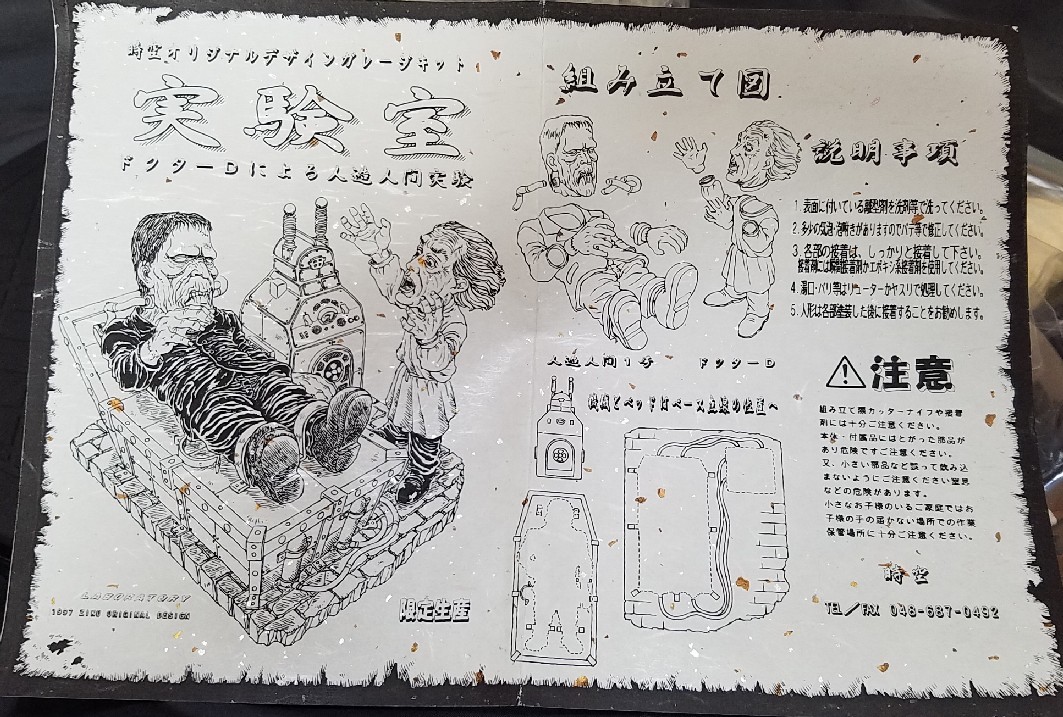 時空オリジナルデザインガレージキット
実験室
ドクターDによる人造人間実験
LABORATORY
1997 ZIKU ORIGINAL DESIGN
限定生産
組み立て図
人造人間1号
ドクターD
機械とベッドはベース点線の位置へ
説明事項
1. 表面に付いている離型剤を洗剤等で洗ってください。
2. 多少の気泡・湯噴きがありますのでパテ等で修正してください。
3. 各部の接着は、しっかりと接着して下さい。
接着剤には瞬間接着剤かエポキシ系接着剤を使用してください。
4. 湯口・バリ等はリューターかヤスリで処理してください。
5. 人形は各部塗装した後に接着することをお勧めします。
注意
組み立て際カッターナイフや接着
剤には十分ご注意ください。
本体・付属品にはとがった部品が
あり危険ですご注意ください。
又、小さい部品など誤って飲み込
まないようにご注意ください窒息
などの危険があります。
小さなお子様のいるご家庭ではお
子様の手の届かない場所での作業
保管場所に十分ご注意ください。
時空
TEL/FAX 048-687-0492